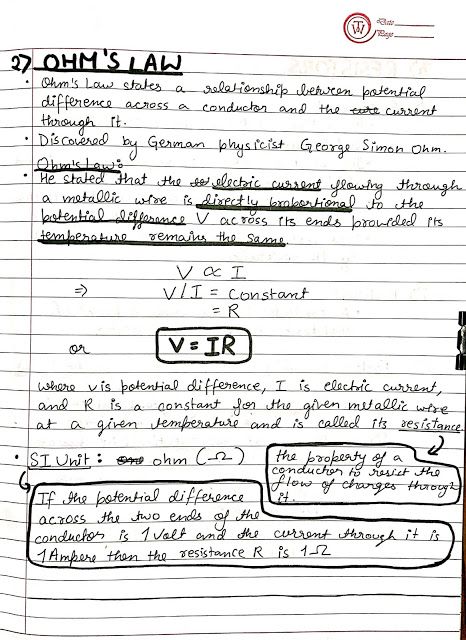 TW
Date
Page
27 OHM'S LAW
• Ohm's Law states a relationship between potential
difference across a conductor and the current
through it.
• Discovered by German physicist George Simon Ohm.
Ohm's Law:
• He stated that the electric current flowing through
a metallic wire is directly proportional to the
potential difference V across its ends provided its
temperature remains the same.
V ∝ I
⇒ V/I = Constant
= R
or V = IR
where v is potential difference, I is electric current,
and R is a constant for the given metallic wire
at a given temperature and is called its resistance
• SI Unit : ohm (Ω)
the property of a
conductor to resist the
flow of charges through
it.
If the potential difference
across the two ends of the
conductor is 1 Volt and the current through it is
1 Ampere then the resistance R is 1Ω